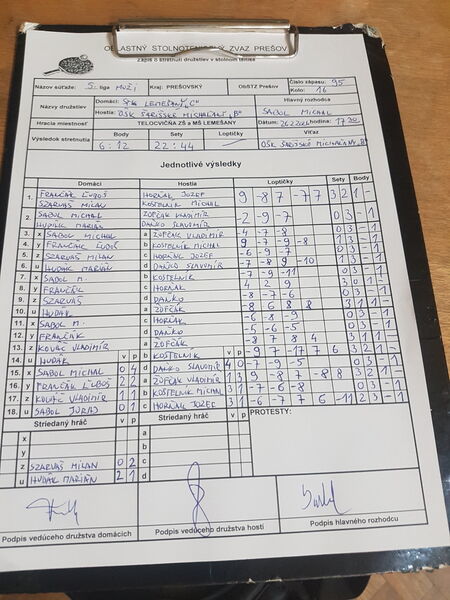 OBLASTNÝ STOLNOTENISOVÝ ZVÄZ PREŠOV
Zápis o stretnutí družstiev v stolnom tenise
Názov súťaže: 5. liga MUŽI Kraj: PREŠOVSKÝ ObSTZ Prešov Číslo zápasu: 95
Kolo: 16
Názov družstiev Domáci: LEMEŠANY "C" Hlavný rozhodca
Hostia: OŠK ŠARIŠSKÉ MICHAĽANY "B" SABOL MICHAL
Hracia miestnosť TELOCVIČŇA ZŠ a MŠ LEMEŠANY Dátum: hodina: 17:30
Výsledok stretnutia Body Sety Loptičky Víťaz
6:12 22:44 : OŠK ŠARIŠSKÉ MICHAĽANY "B"
Jednotlivé výsledky
Domáci Hostia Loptičky Sety Body
1. FRANČÁK ĽUBOŠ HORŇÁK JOZEF 9 -8 7 -7 7 3 2 1 -
SZARVAŠ MILAN KOSTELNÍK MICHAL
2. SABOL MICHAL ZOFČÁK VLADIMÍR -2 -9 -7 0 3 - 1
HUDÁK MARIÁN DANKO SLAVOMÍR
3. x SABOL MICHAL a ZOFČÁK VLADIMÍR -4 -7 -8 0 3 - 1
4. y FRANČÁK ĽUBOŠ b KOSTELNÍK MICHAL 9 -7 -9 -8 1 3 - 1
5. z SZARVAŠ MILAN c HORŇÁK JOZEF -6 -9 0 3 - 1
6. u HUDÁK MARIÁN d DANKO SLAVOMÍR -7 -8 9 -10 1 3 - 1
7. x SABOL M. b KOSTELNÍK -7 -9 -11 0 3 - 1
8. y FRANČÁK c HORŇÁK 4 2 9 3 0 1 -
9. z SZARVAŠ d DANKO -8 -7 -6 0 3 - 1
10. u HUDÁK a ZOFČÁK -8 6 8 8 3 1 1 -
11. x SABOL M. c HORŇÁK -6 -8 -9 0 3 - 1
12. y FRANČÁK d DANKO -5 -6 -5 0 3 - 1
13. z KOVÁČ VLADIMÍR a ZOFČÁK -8 7 8 4 3 1 1 -
14. u HUDÁK v p b KOSTELNÍK v p 9 -7 -17 7 6 3 2 1 -
15. x SABOL MICHAL 0 4 d DANKO SLAVOMÍR 4 0 -7 -9 -5 0 3 - 1
16. y FRANČÁK ĽUBOŠ 2 2 a ZOFČÁK VLADIMÍR 1 3 9 -8 7 -8 8 3 2 1 -
17. z KOVÁČ VLADIMÍR 1 1 b KOSTELNÍK MICHAL 3 1 -7 -6 -8 0 3 - 1
18. u SABOL 0 1 c HORŇÁK JOZEF 3 1 -6 -7 7 6 -11 2 3 - 1
Striedaný hráč v p Striedaný hráč v p PROTESTY:
x a
y b
z SZARVAŠ MILAN 0 2 c
u HUDÁK MARIÁN 2 1 d
Podpis vedúceho družstva domácich Podpis vedúceho družstva hostí Podpis hlavného rozhodcu